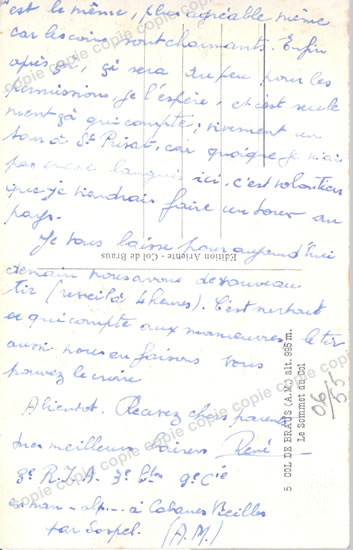 est le même, plus agréable même
car les coins sont charmants. Enfin
après ça, ça sera un peu pour les
permissions, je l'espère, et c'est seule
ment ça qui compte, vivement un
tour à St Privat, car quoique je n'ai
pas encore langui ici, c'est volontiers
que je viendrais faire un tour au
pays.
Je vous laisse pour aujourd'hui
demain nous avons de nouveau
tir (reveil à 4 heures). C'est surtout
ce qui compte aux manœuvres le tir
aussi nous en faisons vous
pouvez le croire
A bientot. Recevez chers parents
mes meilleurs baisers René
3e R.I.A. 3e btn 9e Cie
en man - alp - à Cabanes Vieilles
par Sospel. (A.M.)
Edition Ariente - Col de Braus
5 COL DE BRAUS (A.M.) alt. 995 m.
Le Sommet du Col
06/55
copie copie copie copie copie